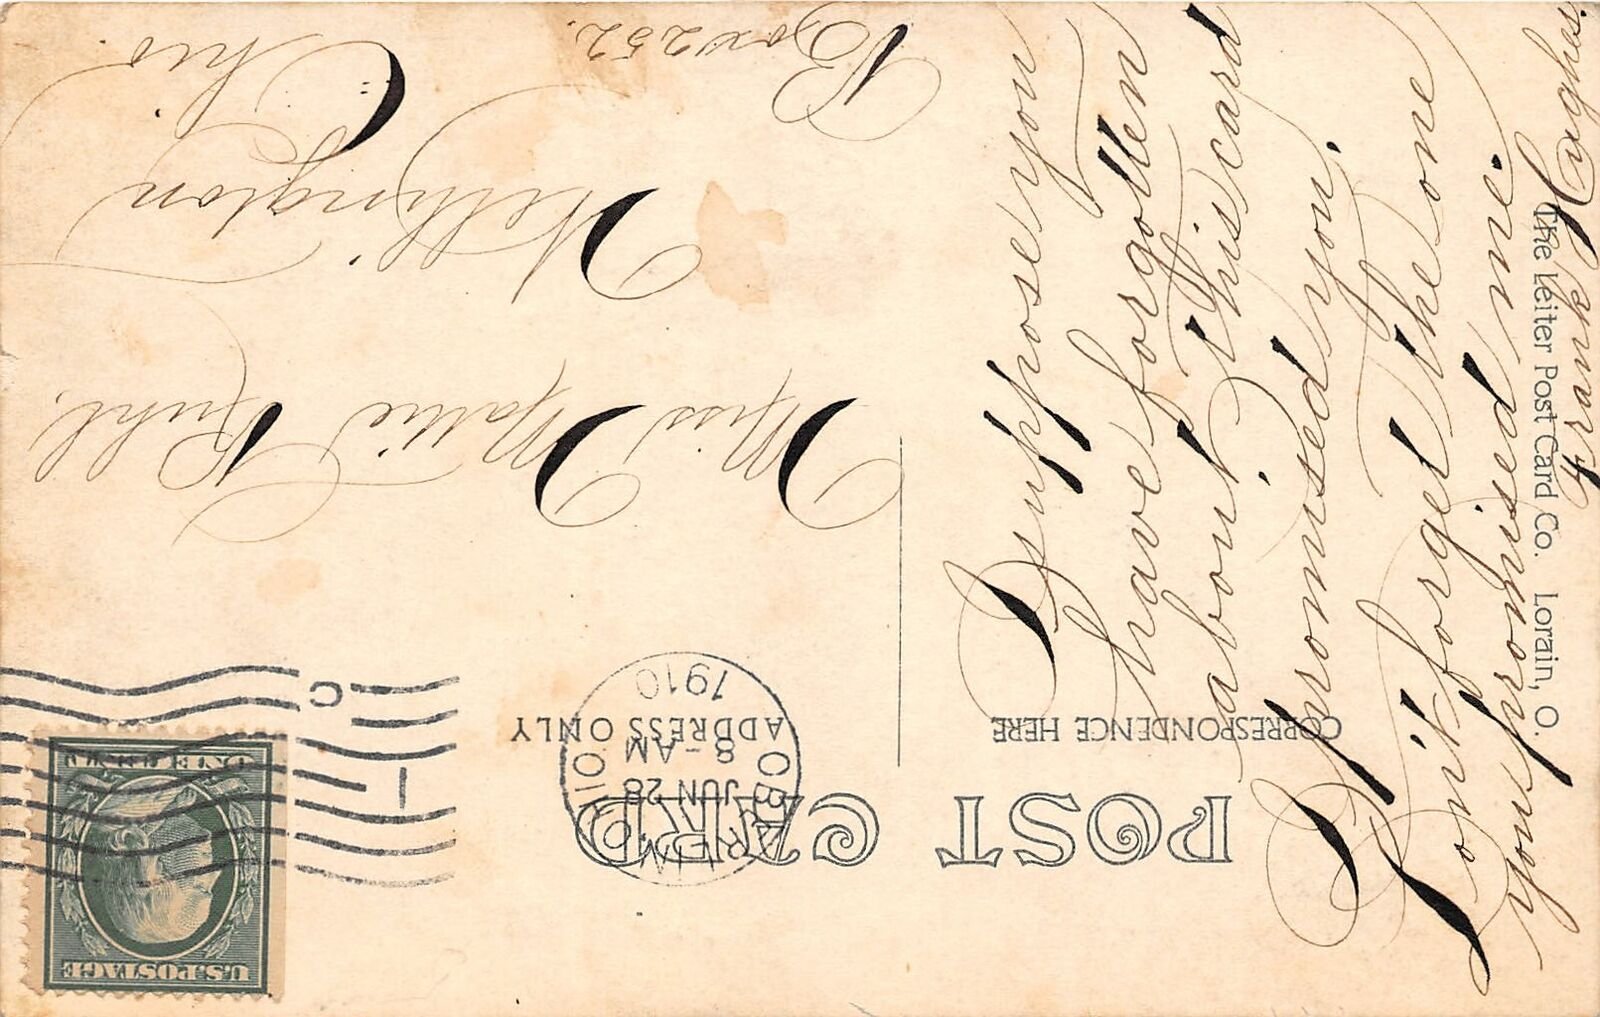 POST CARD
CORRESPONDENCE HERE
ADDRESS ONLY
U.S. POSTAGE
ONE CENT
JUN 28
8-AM
1910
OHIO
C
1
Suppose you
have forgotten
about this card
I promised you.
Don't forget the one
you promised me.
Frank Hughes.
Miss Mattie Ruhl,
Wellington
Ohio.
Box 252.
The Leiter Post Card Co. Lorain, O.